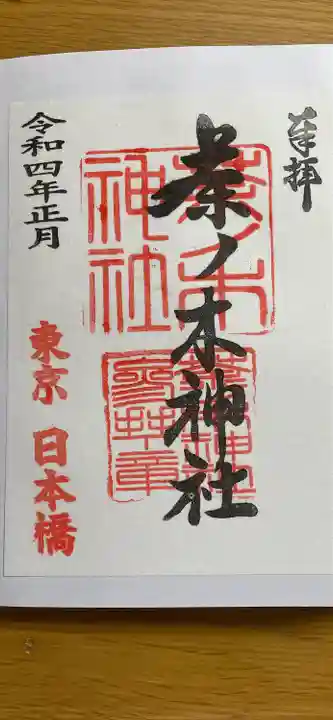 奉拝
茶ノ木神社
茶ノ木
神社
令和四年正月
東京 日本橋